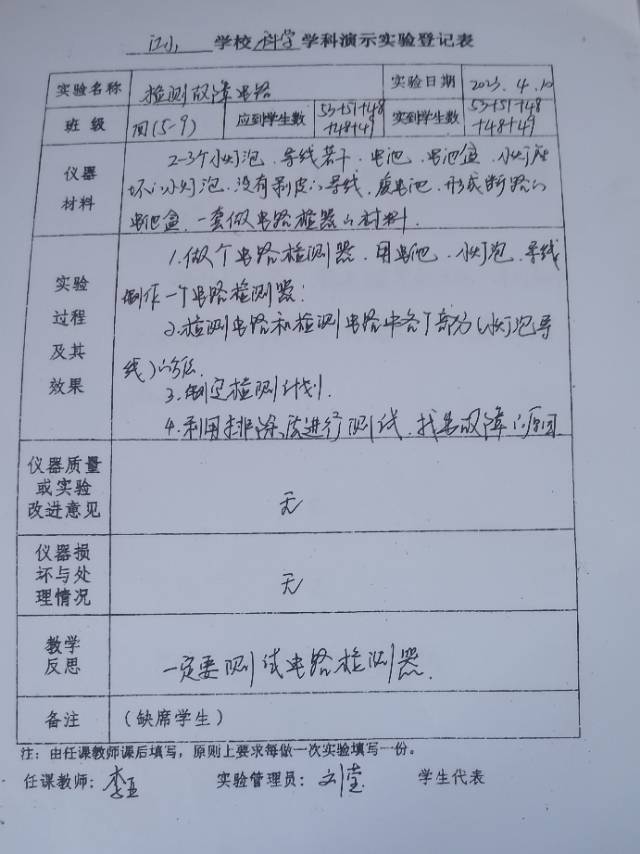 江小 学校 科学 学科演示实验登记表
实验名称 检测故障电路 实验日期 2023.4.10
班 级 四(5-9) 应到学生数 53+51+48+48+49 实到学生数 53+51+48+48+49
仪器材料
2-3个小灯泡、导线若干、电池、电池盒、小灯座
坏的小灯泡、没有剥皮的导线、废电池、形成断路的
电池盒、一套做电路检测器的材料.
实验过程及其效果
1.做个电路检测器、用电池、小灯泡、导线
制作一个电路检测器;
2.检测电路和检测电路中各个部分(小灯泡导
线)的方法.
3.制定检测计划.
4.利用排除法进行测试,找出故障的原因
仪器质量或实验改进意见
无
仪器损坏与处理情况
无
教学反思
一定要测试电路检测器.
备注 (缺席学生)
注: 由任课教师课后填写, 原则上要求每做一次实验填写一份。
任课教师: 李 实验管理员: 刘莹 学生代表